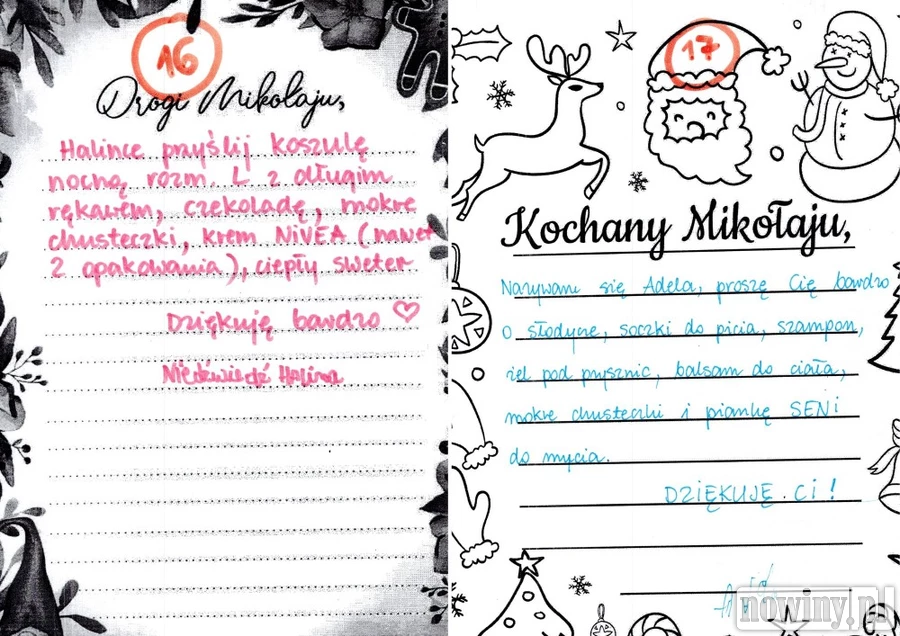 16
Drogi Mikołaju,
Halince przyślij koszulę
nocną rozm. L z długim
rękawem, czekoladę, mokre
chusteczki, krem NIVEA (nawet
2 opakowania), ciepły sweter
Dziękuję bardzo
Niedźwiedź Halina
17
Kochany Mikołaju,
Nazywam się Adela, proszę Cię bardzo
o słodycze, soczki do picia, szampon,
żel pod prysznic, balsam do ciała,
mokre chusteczki i piankę SENi
do mycia.
DZIĘKUJĘ CI!
nowiny.pl